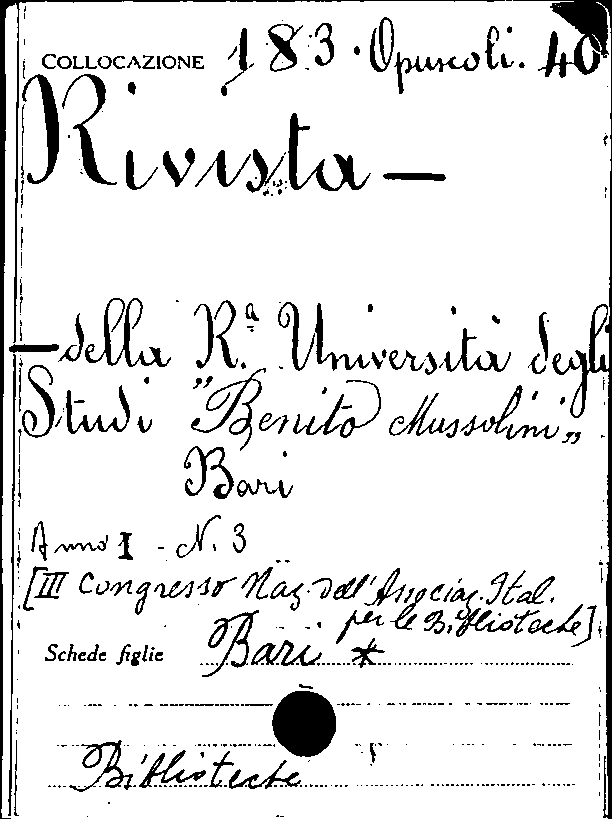 COLLOCAZIONE 183. Opuscoli. 40
Rivista —
— della R.ª Università degli
Studi "Benito Mussolini„
Bari
Anno I - N. 3
[III Congresso Naz. dell'Associaz. Ital.
per le Biblioteche]
Schede figlie Bari *
Biblioteche